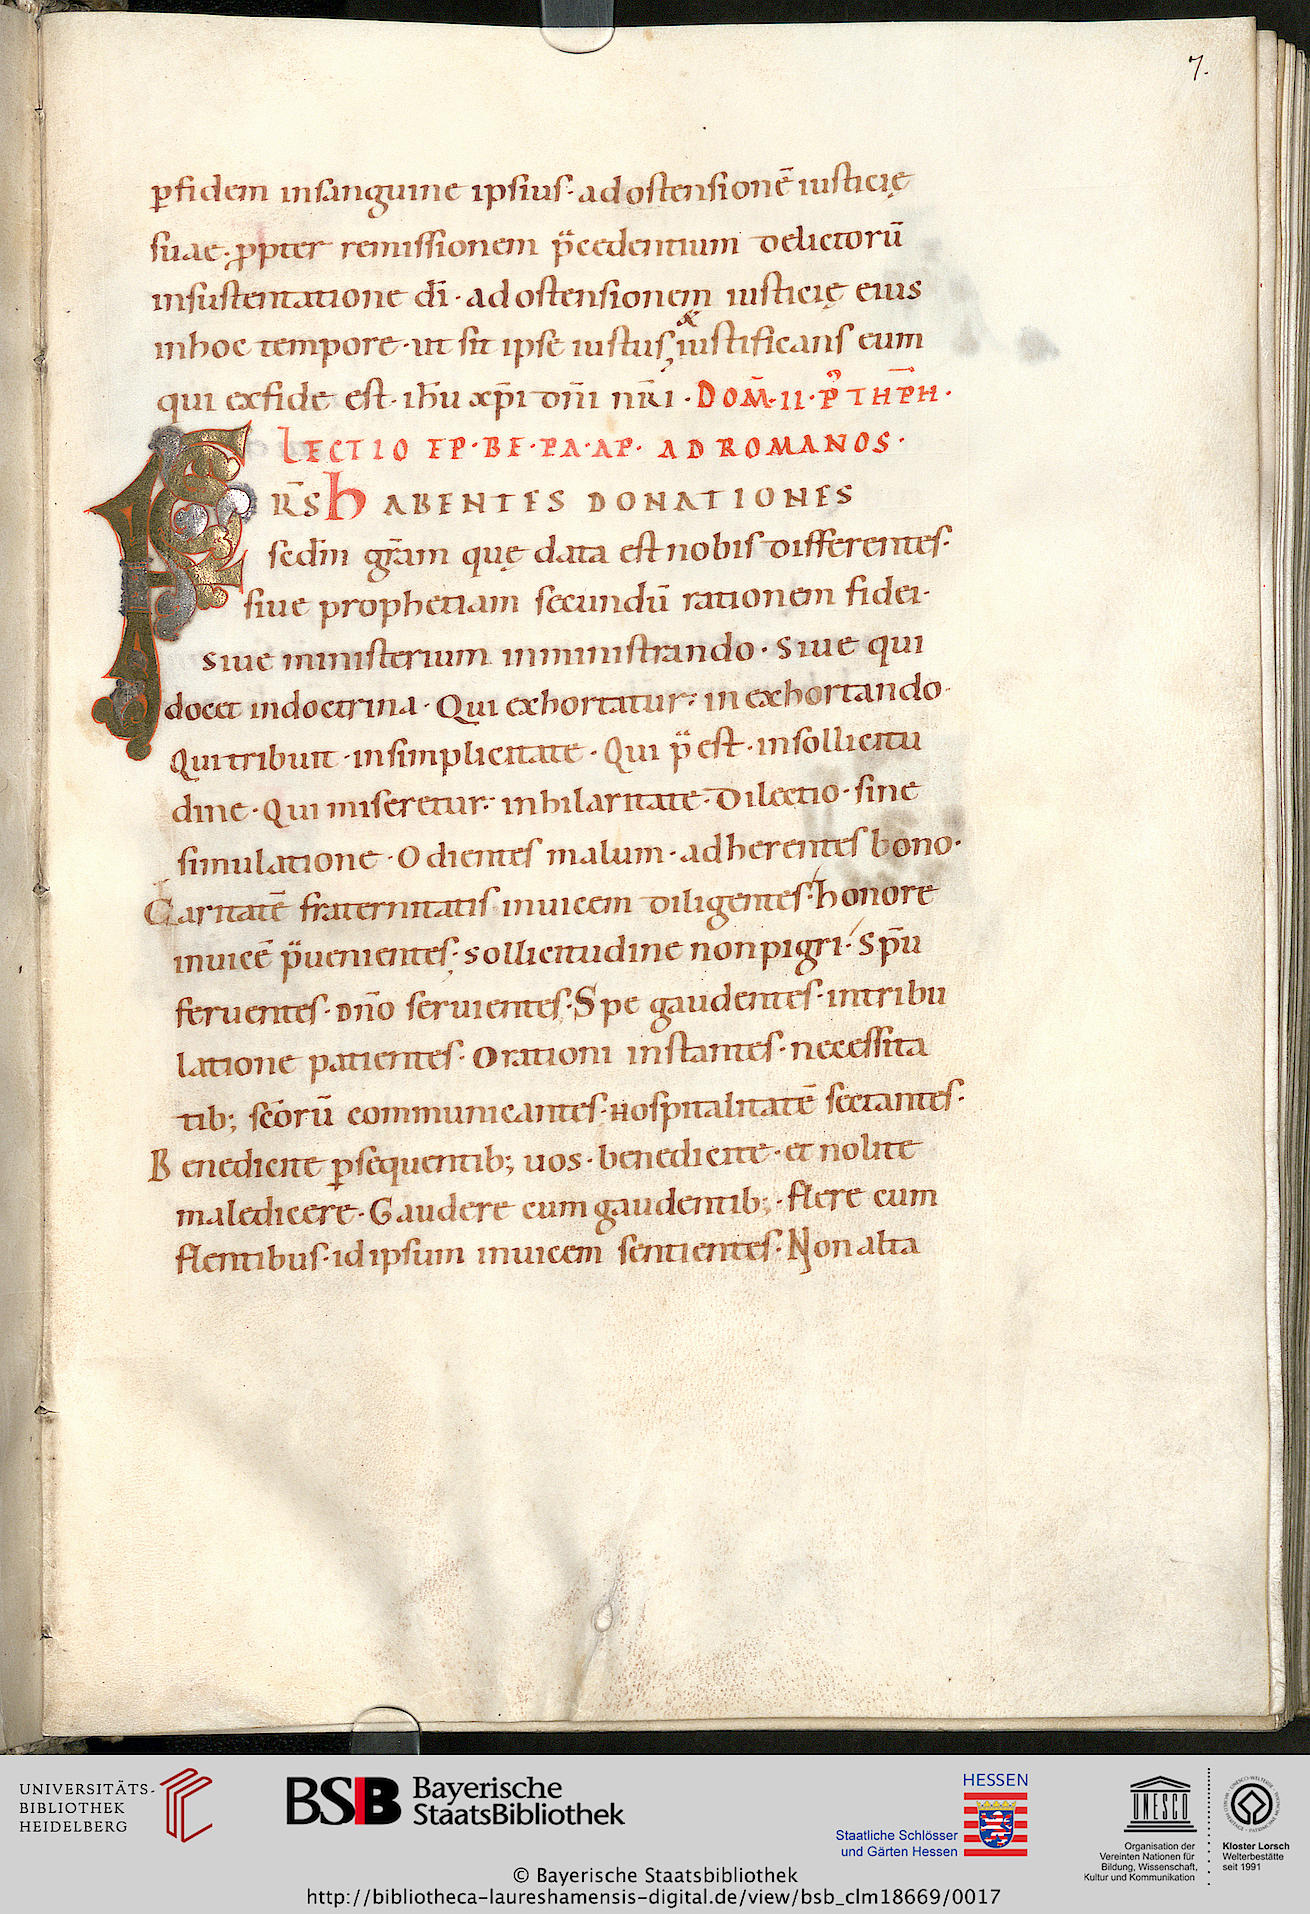 7.
p̲fidem insanguine ipsius· adostensionē iusticię
suae· ꝓpter remissionem p̄cedentium delictorū
insustentatione dī· adostensionem iusticię eius
inhoc tempore· ut sit ipse iustus, & iustificans eum
qui exfide est· ih̄u xp̄i dn̄i nr̄i · DOM̄· II· P̄ THPH·
LECTIO EP· BE· PA· AP· AD ROMANOS·
FR̄S HABENTES DONATIONES
sedm̄ gr̄am quę data est nobis differentes·
siue prophetiam secundū rationem fidei·
siue ministerium inministrando· Siue qui
docet indoctrina· Qui exhortatur· in exhortando·
Qui tribuit· insimplicitate· Qui p̄est· insollicitu
dine· Qui miseretur· inhilaritate· Dilectio· sine
simulatione· Odientes malum· adherentes bono·
Caritatē fraternitatis inuicem diligentes· honore
inuicē p̄uenientes· sollicitudine nonpigri· Sp̄u
feruentes· Dn̄o seruientes· Spe gaudentes· intribu
latione patientes· Orationi instantes· necessita
tib; sc̄orū communicantes· Hospitalitatē sectantes·
Benedicite ꝑsequentib; uos· benedicite· et nolite
maledicere· Gaudere cum gaudentib;· flere cum
flentibus· idipsum inuicem sentientes· Non alta
UNIVERSITÄTS-
BIBLIOTHEK
HEIDELBERG
BSB Bayerische
StaatsBibliothek
HESSEN
Staatliche Schlösser
und Gärten Hessen
UNESCO
Organisation der
Vereinten Nationen für
Bildung, Wissenschaft,
Kultur und Kommunikation
Kloster Lorsch
Welterbestätte
seit 1991
© Bayerische Staatsbibliothek
http://bibliotheca-laureshamensis-digital.de/view/bsb_clm18669/0017